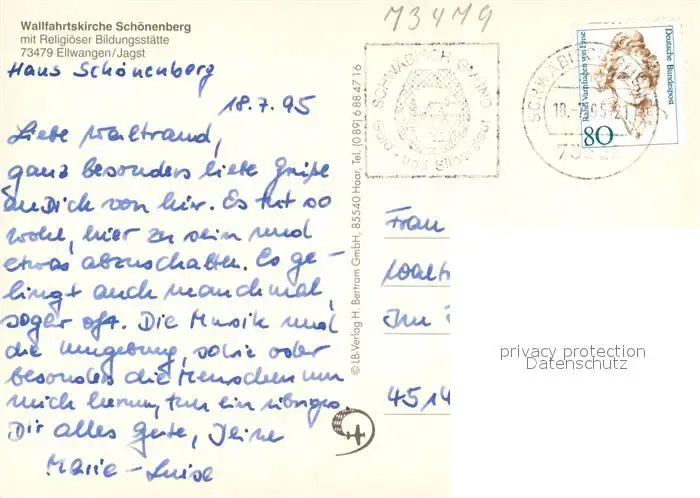 73479
Wallfahrtskirche Schönenberg
mit Religiöser Bildungsstätte
73479 Ellwangen/Jagst
Haus Schönenberg
18.7.95
Liebe Waltraud,
ganz besonders liebe Grüße
an Dich von hier. Es tut so
wohl, hier zu sein und
etwas abzuschalten. Es ge-
lingt auch manchmal,
sogar oft. Die Musik und
die Umgebung, sowie oder
besonders die Menschen um
mich herum, tun ein übriges.
Dir alles Gute, Deine
Marie-Luise
© LB-Verlag H. Bertram GmbH, 85540 Haar, Tel. (089) 6884716
SCHWÄBISCH GMÜND
SCHWÄBISCH
18.-7.95-21
Rahel Varnhagen von Ense
Deutsche Bundespost
80
Frau
Walt
Im
4514
privacy protection
Datenschutz